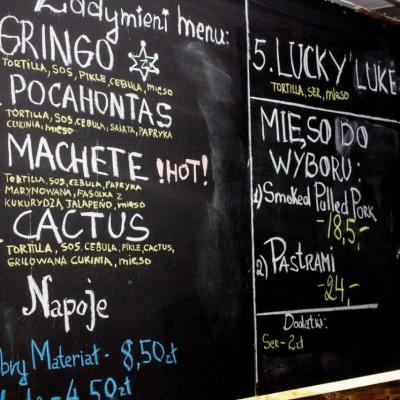 Zadymieni menu:
GRINGO
TORTILLA, SOS, PIKLE, CEBULA, MIĘSO
POCAHONTAS
TORTILLA, SOS, CEBULA, SAŁATA, PAPRYKA
CUKINIA, MIĘSO
MACHETE !HOT!
TORTILLA, SOS, CEBULA, PAPRYKA
MARYNOWANA, FASOLKA Z
KUKURYDZĄ, JALAPEÑO, MIĘSO
CACTUS
TORTILLA, SOS, CEBULA, PIKLE, CACTUS,
GRILOWANA CUKINIA, MIĘSO
Napoje
bry Materiał - 8,50zł
- 4,50zł
5. LUCKY LUKE
TORTILLA, SER, MIĘSO
MIĘSO DO
WYBORU:
1) Smoked Pulled Pork
-18,5,-
2) PASTRAMI
-24,-
Dodatki:
Ser - 2zł